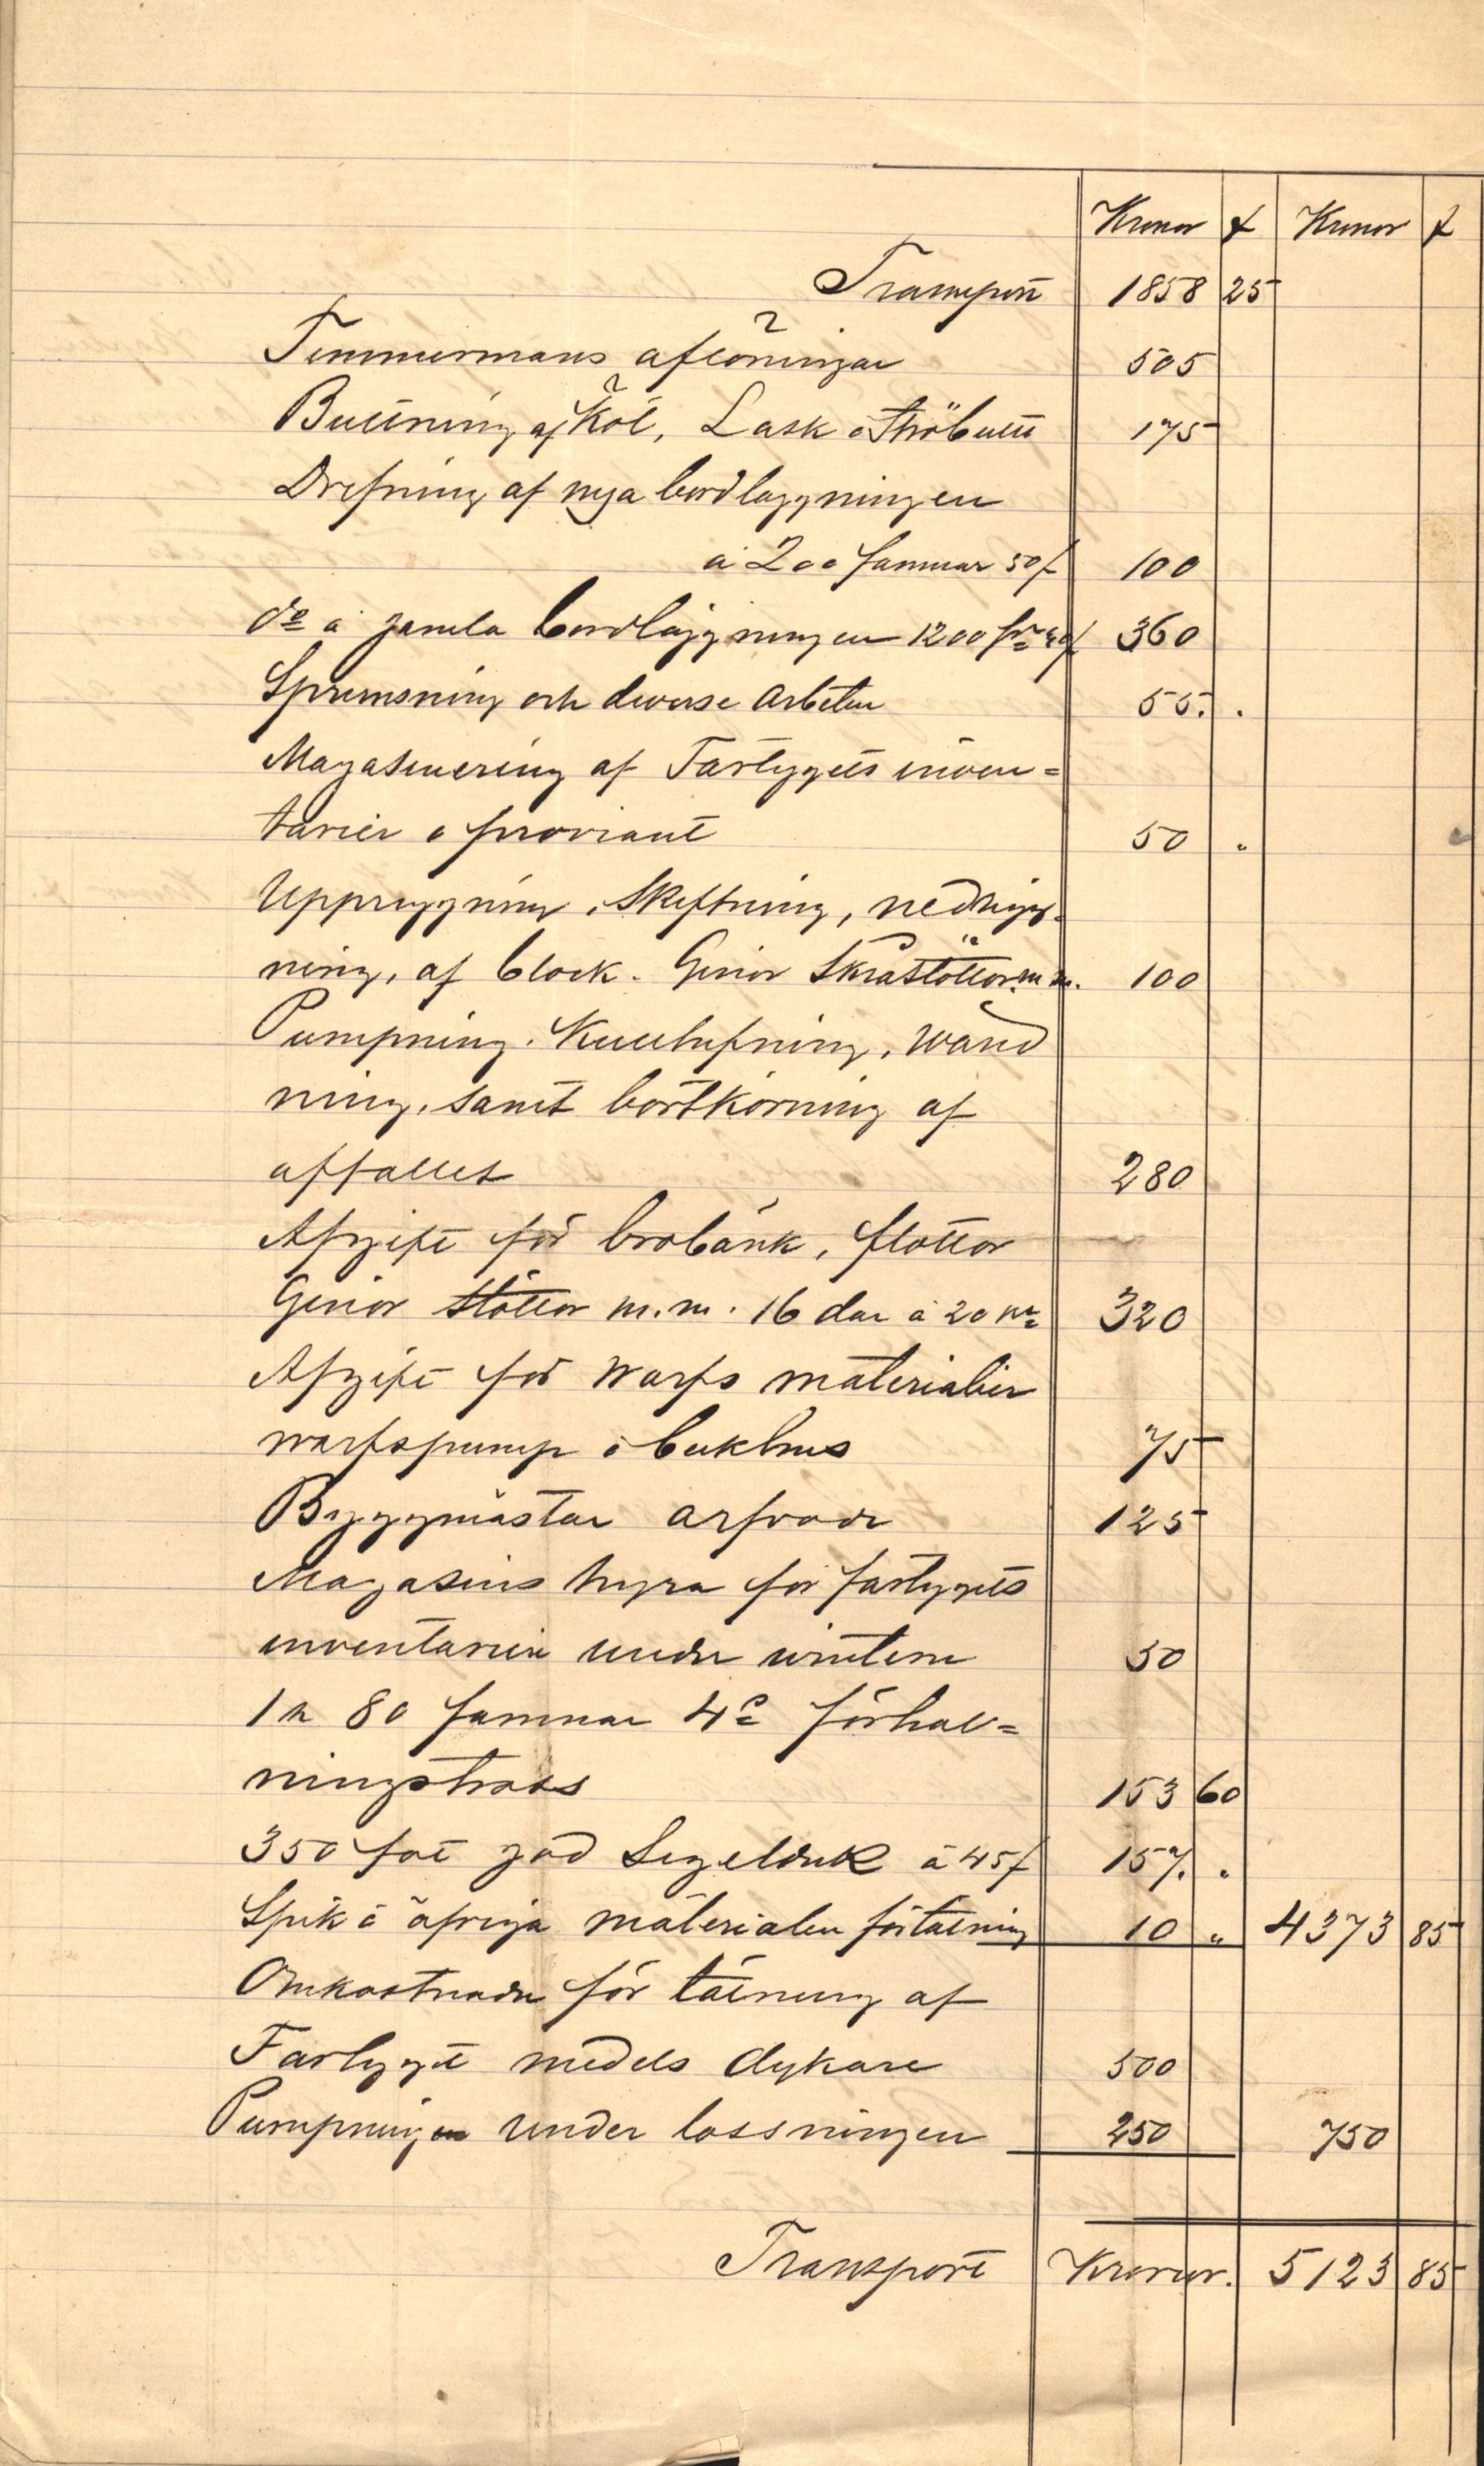 Kronor f Kronor f
Transport 1858 25
Timmermans aflöningar 505
Bultning af Köl, Lask o Stråbult 175
Drifning af nya bordläggningen
à 200 famnar 50 f 100
do à gamla bordläggningen 1200 fr 30 f 360
Sprumsning och diverse arbeten 55. .
Magasinering af Fartygets inven=
tarier o proviant 50 "
Uppriggning, Skiftning, nedrigg=
ning, af block. Ginor Skråstöttor m.m. 100
Pumpning, Kullhifning, Wänd
ning, samt bortkörning af
affallet 280
Afgift för bråbänk, flottor
Ginor stöttor m.m. 16 dar à 20 kr 320
Afgift för warfs materialier
warfspump o kokhus 75
Byggmästar arfvode 125
Magasins hyra för fartygets
inventarier under wintern 50
1 st 80 famnar 4" förhal=
ningstross 153 60
350 fot god Segelduk à 45 f 157. "
Spik o öfriga materialier för tätning 10 " 4373 85
Omkostnader för tätning af
Fartyget medels dykare 500
Pumpningen under lossningen 250 750
Transport Kronor. 5123 85